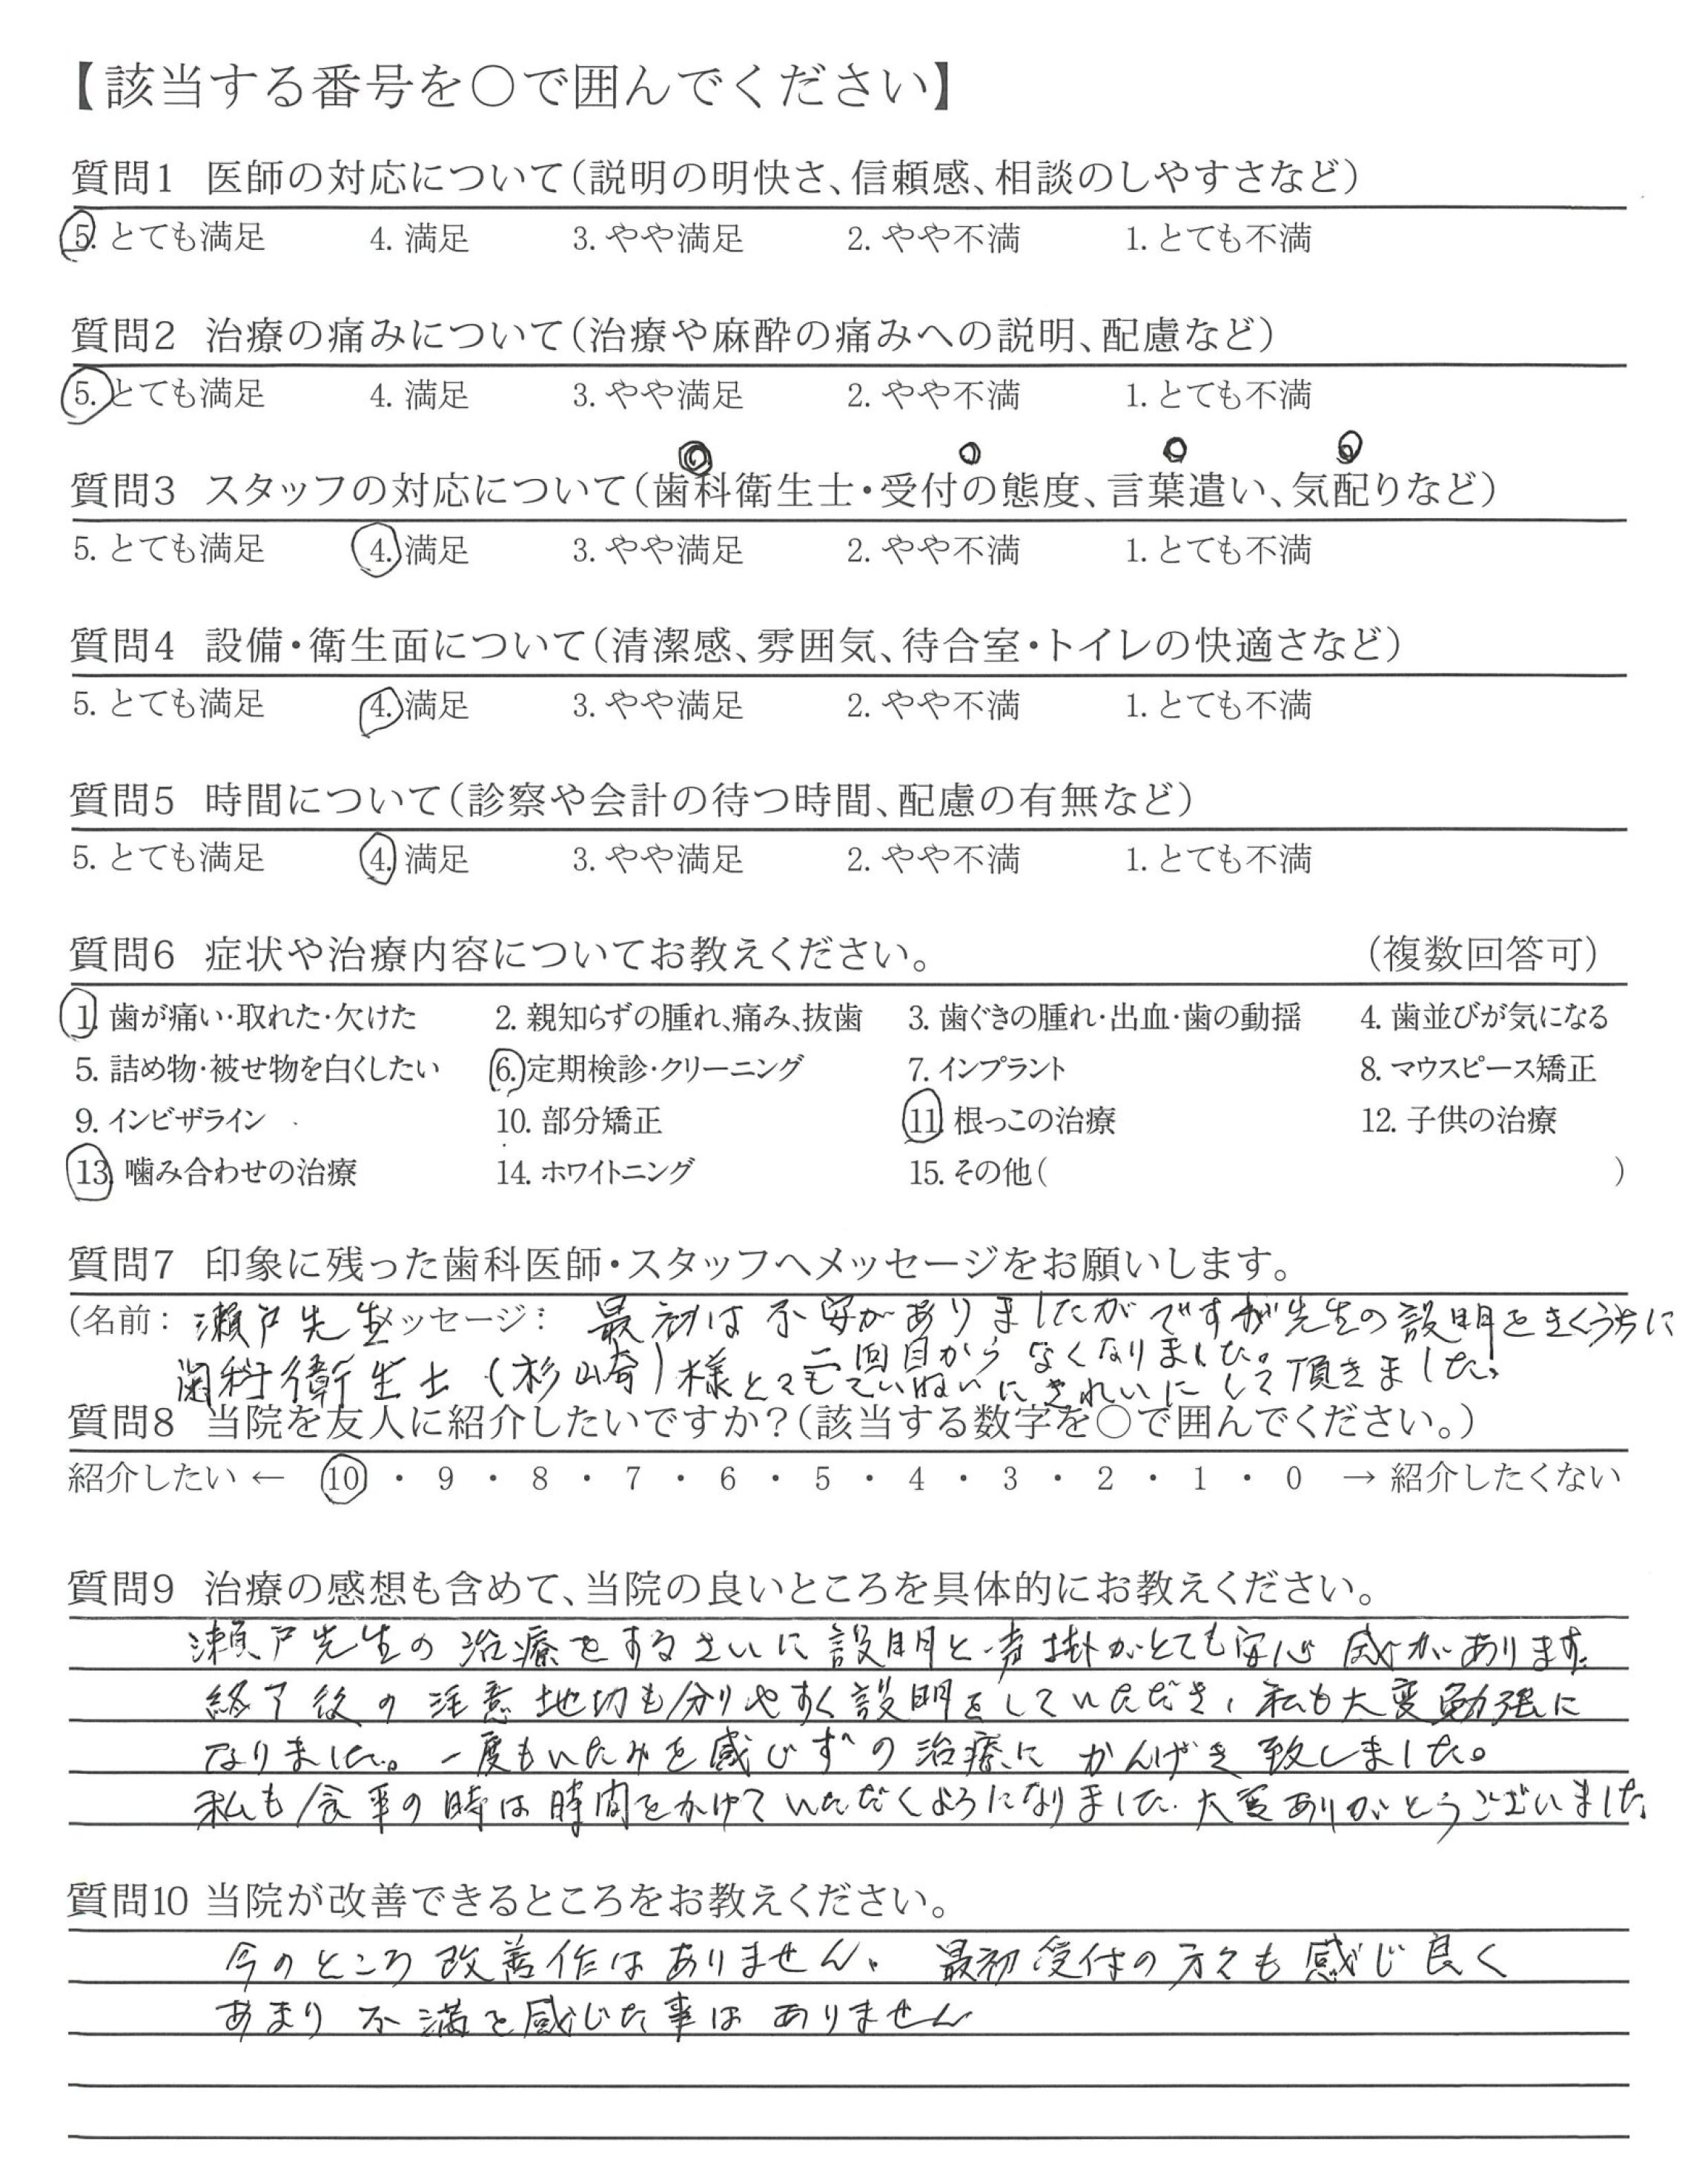 【該当する番号を〇で囲んでください】
質問1 医師の対応について(説明の明快さ、信頼感、相談のしやすさなど)
5. とても満足 4. 満足 3. やや満足 2. やや不満 1. とても不満
質問2 治療の痛みについて(治療や麻酔の痛みへの説明、配慮など)
5. とても満足 4. 満足 3. やや満足 2. やや不満 1. とても不満
質問3 スタッフの対応について(歯科衛生士・受付の態度、言葉遣い、気配りなど)
5. とても満足 4. 満足 3. やや満足 2. やや不満 1. とても不満
質問4 設備・衛生面について(清潔感、雰囲気、待合室・トイレの快適さなど)
5. とても満足 4. 満足 3. やや満足 2. やや不満 1. とても不満
質問5 時間について(診察や会計の待つ時間、配慮の有無など)
5. とても満足 4. 満足 3. やや満足 2. やや不満 1. とても不満
質問6 症状や治療内容についてお教えください。 (複数回答可)
1. 歯が痛い・取れた・欠けた 2. 親知らずの腫れ、痛み、抜歯 3. 歯ぐきの腫れ・出血・歯の動揺 4. 歯並びが気になる
5. 詰め物・被せ物を白くしたい 6. 定期検診・クリーニング 7. インプラント 8. マウスピース矯正
9. インビザライン 10. 部分矯正 11. 根っこの治療 12. 子供の治療
13. 噛み合わせの治療 14. ホワイトニング 15. その他( )
質問7 印象に残った歯科医師・スタッフへメッセージをお願いします。
(名前: 瀬戸先生 メッセージ: 最初は不安がありましたがですが先生の説明をきくうちに
二回目からなくなりました。
歯科衛生士(杉山崎)様とてもていねいにきれいにして頂きました。
質問8 当院を友人に紹介したいですか?(該当する数字を〇で囲んでください。)
紹介したい ← 10 ・ 9 ・ 8 ・ 7 ・ 6 ・ 5 ・ 4 ・ 3 ・ 2 ・ 1 ・ 0 → 紹介したくない
質問9 治療の感想も含めて、当院の良いところを具体的にお教えください。
瀬戸先生の治療をするさいに説明と声掛がとても安心感があります。
終了後の注意 も分りやすく説明をしていただき、私も大変勉強に
なりました。一度もいたみを感じずの治療に かんげき致しました。
私も食事の時は時間をかけていただくようになりました。大変ありがとうございました。
質問10 当院が改善できるところをお教えください。
今のところ改善 はありません。最初受付の方々も感じ良く
あまり不満を感じた事はありません